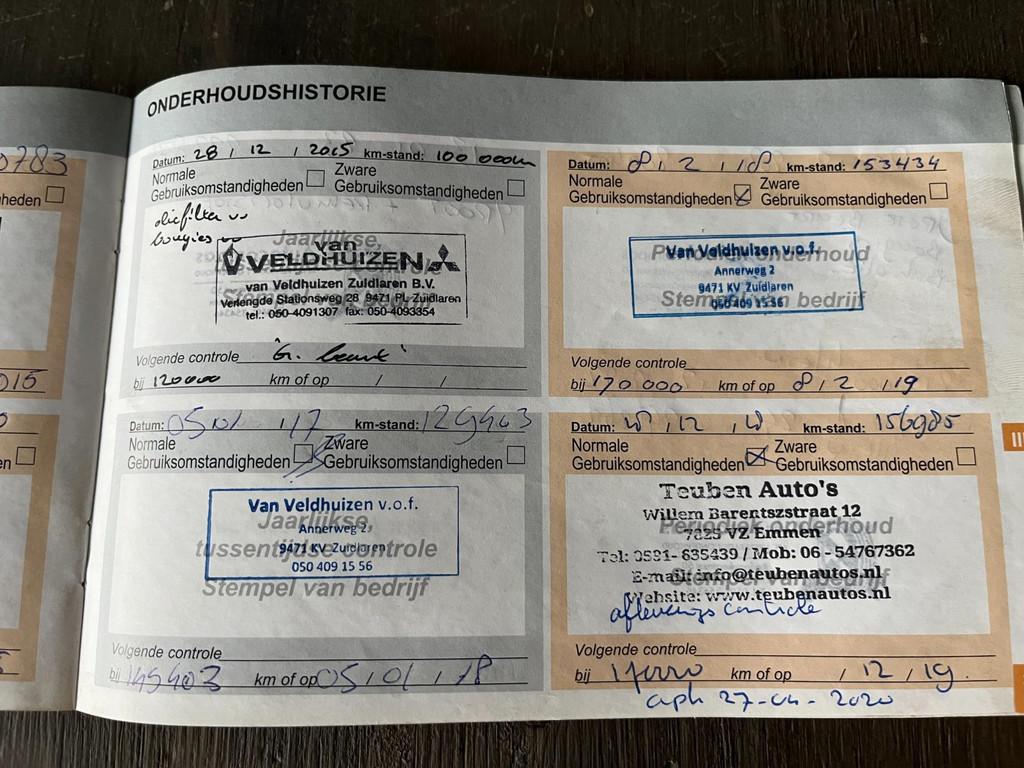 0783
heden
015
en
ONDERHOUDSHISTORIE
Datum: 28 / 12 / 2015 km-stand: 100 000km
Normale Gebruiksomstandigheden
Zware Gebruiksomstandigheden
oliefilter vv
bougies vv
Jaarlijkse,
van
VELDHUIZEN
van Veldhuizen Zuidlaren B.V.
Verlengde Stationsweg 28 9471 PL Zuidlaren
tel.: 050-4091307 fax: 050-4093354
Volgende controle 'Gr. beurt'
bij 120000 km of op / /
Datum: 8 / 2 / 18 km-stand: 153434
Normale Gebruiksomstandigheden
Zware Gebruiksomstandigheden
Periodiek onderhoud
Stempel van bedrijf
Van Veldhuizen v.o.f.
Annerweg 2
9471 KV Zuidlaren
050 409 15 56
Volgende controle
bij 170 000 km of op 8 / 2 / 19
Datum: 05 / 01 / 17 km-stand: 129403
Normale Gebruiksomstandigheden
Zware Gebruiksomstandigheden
Jaarlijkse,
tussentijdse controle
Stempel van bedrijf
Van Veldhuizen v.o.f.
Annerweg 2
9471 KV Zuidlaren
050 409 15 56
Volgende controle
bij 149403 km of op 05 / 01 / 18
Datum: / 12 / 18 km-stand: 156985
Normale Gebruiksomstandigheden
Zware Gebruiksomstandigheden
Periodiek onderhoud
Stempel van bedrijf
Teuben Auto's
Willem Barentszstraat 12
7825 VZ Emmen
Tel: 0591-635439 / Mob: 06 - 54767362
E-mail: info@teubenautos.nl
Website: www.teubenautos.nl
afleverings controle
Volgende controle
bij km of op / 12 / 19.
apk 27-04-2020
III